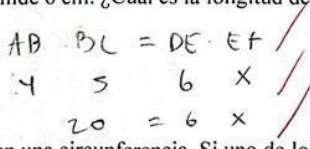 mide 6 cm. ¿Cuál es la longitud de
AB · BC = DE · EF
4 5 6 X
20 = 6 X
en una circunferencia. Si uno de lo